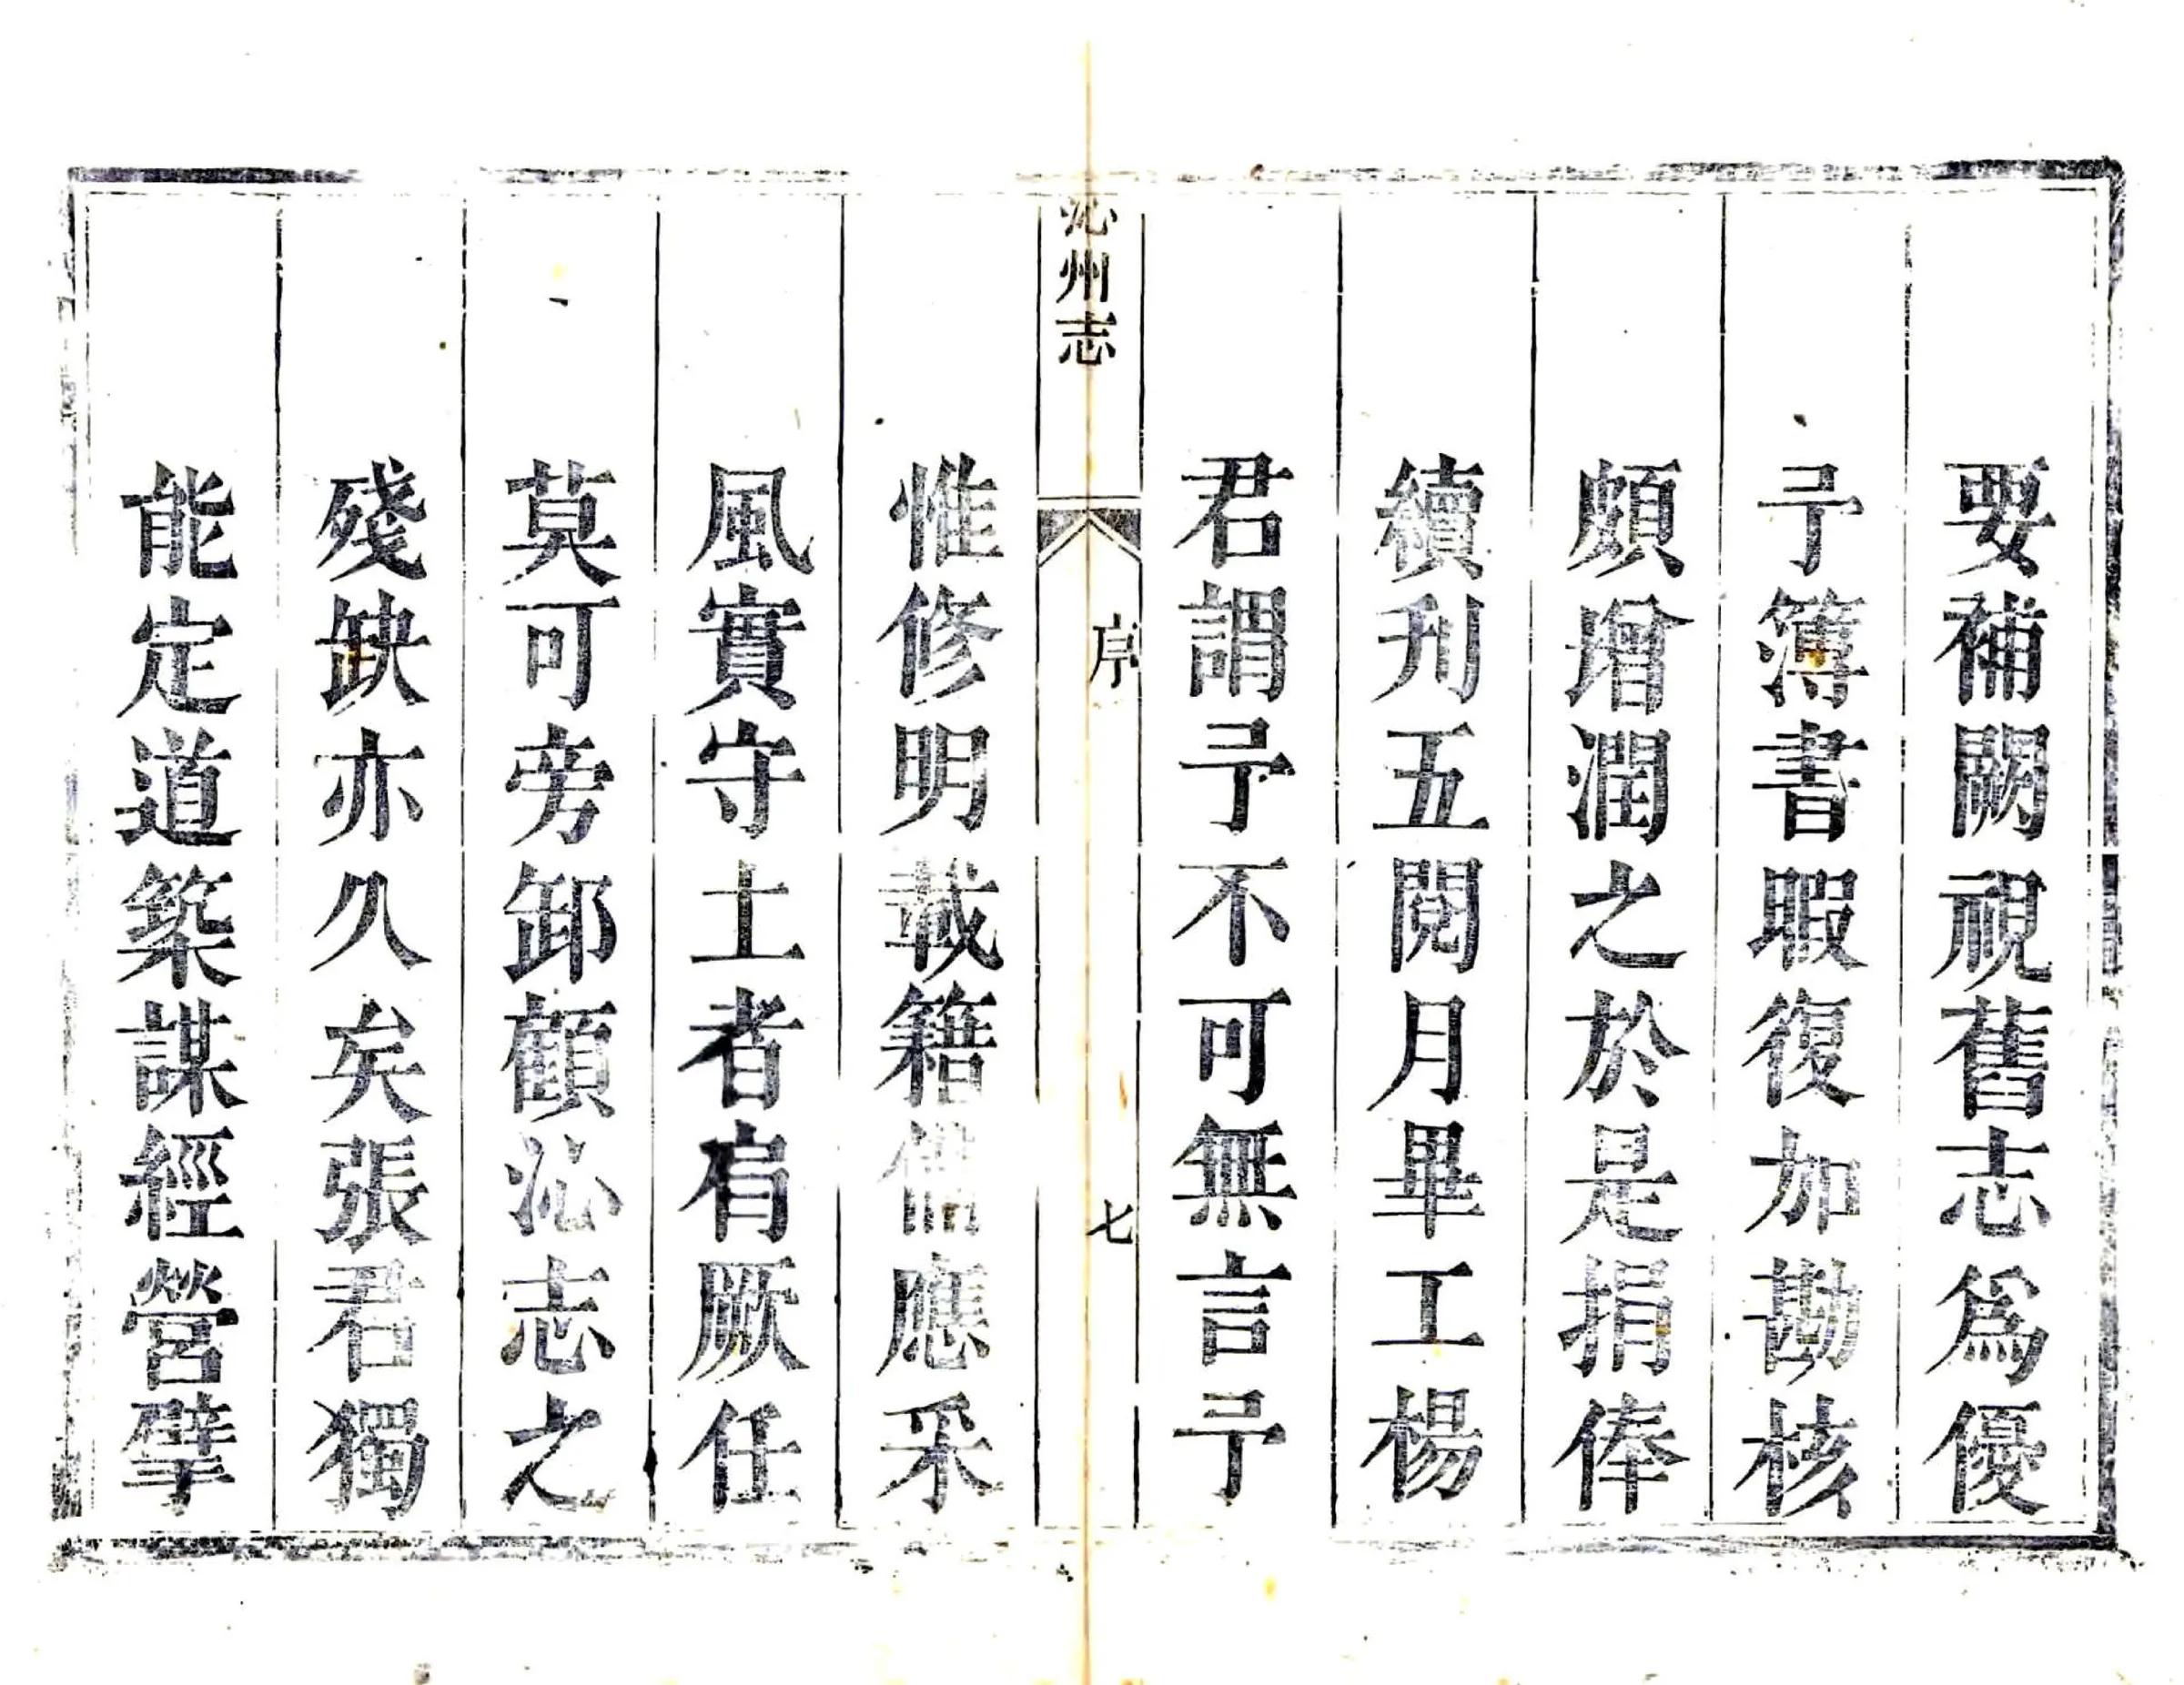 要補闕視舊志爲優
予簿書暇復加勘核
頗增潤之於是捐俸
續刋五閱月畢工楊
君謂予不可無言予
沁州志
序
七
惟修明載籍備應采
風實守土者肩厥任
莫可旁卸顧沁志之
殘缺亦久矣張君獨
能定道築謀經營擘